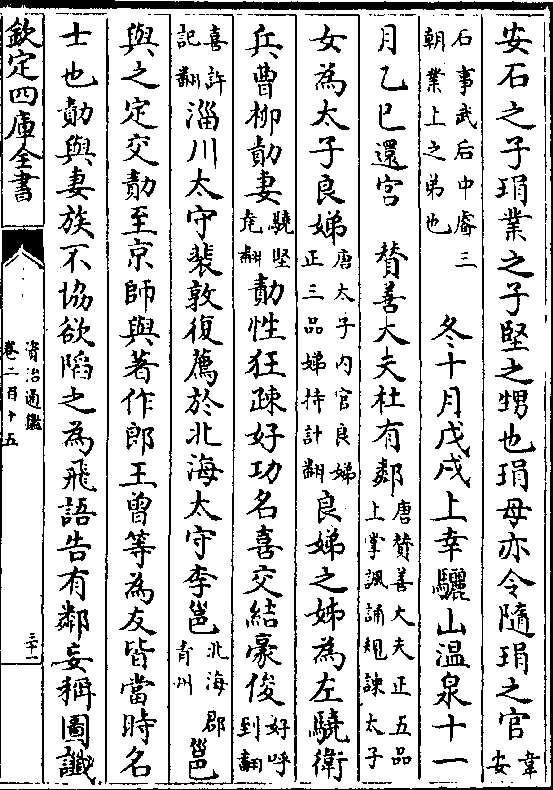 安石之子琄業之子堅之甥也琄母亦令隨琄之官韋安
石事武后中睿三朝業上之弟也　冬十月戊戌上幸驪山温泉十一
月乙巳還宮　賛善大夫杜有鄰唐賛善大夫正五品上掌諷誦規諫太子
女為太子良娣唐太子内官良娣正三品娣持計翻良娣之姊為左驍衛
兵曹柳勣妻驍堅尭翻勣性狂疎好功名喜交結豪俊好呼到翻
喜許記翻淄川太守裴敦復薦於北海太守李邕北海郡青州邕
與之定交勣至京師與著作郎王曾等為友皆當時名
士也勣與妻族不協欲陷之為飛語告有鄰妄稱圖讖
欽定四庫全書
資治通鑑
卷二百十五
三十一